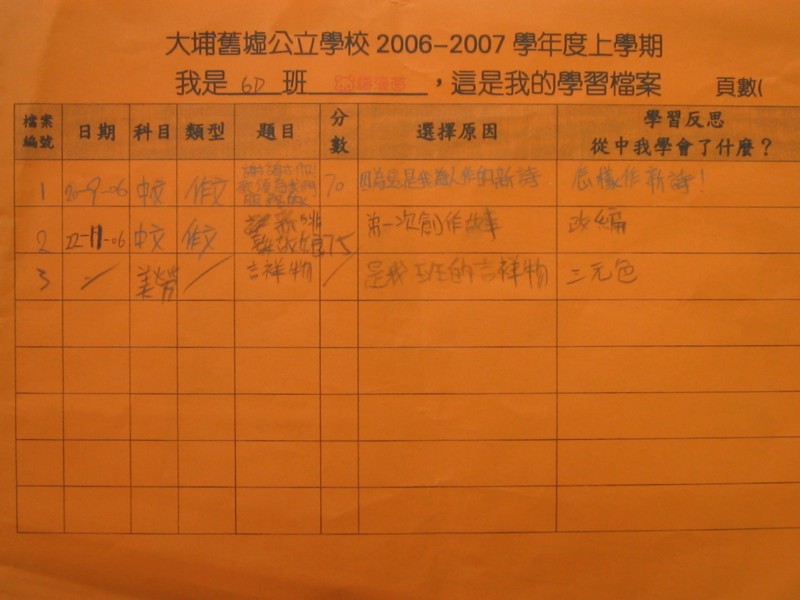 大埔舊墟公立學校 2006-2007 學年度上學期
我是 6D 班 ，這是我的學習檔案 頁數(
檔案編號 日期 科目 類型 題目 分數 選擇原因 學習反思 從中我學會了什麼？
1 20-9-06 中文 作文 70 因為這是我為人作的新詩 怎樣作新詩！
2 22-11-06 中文 作文 75 第一次創作故事 改編
3 美勞 吉祥物 是我班的吉祥物 三元包